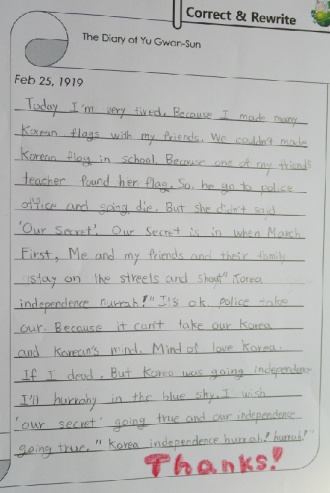 Correct & Rewrite
The Diary of Yu Gwan-Sun
Feb 25, 1919
Today I'm very tired. Because I made many
Korean flags with my friends. We couldn't made
Korean flag in school. Because one of my friends
teacher found her flag. So, he go to police
office and going die. But she didn't said
'Our Secret'. Our Secret is in when March
First, Me and my friends and their family
stay on the streets and shout "Korea
independence hurrah!" It's ok. police take
our. Because it can't take our Korea
and Korean's mind. Mind of love Korea.
If I dead. But Korea was going independence
I'll hurrahy in the blue sky. I wish
'our secret' going true and our independence
going true. "Korea independence hurrah! hurrah!"
Thanks!